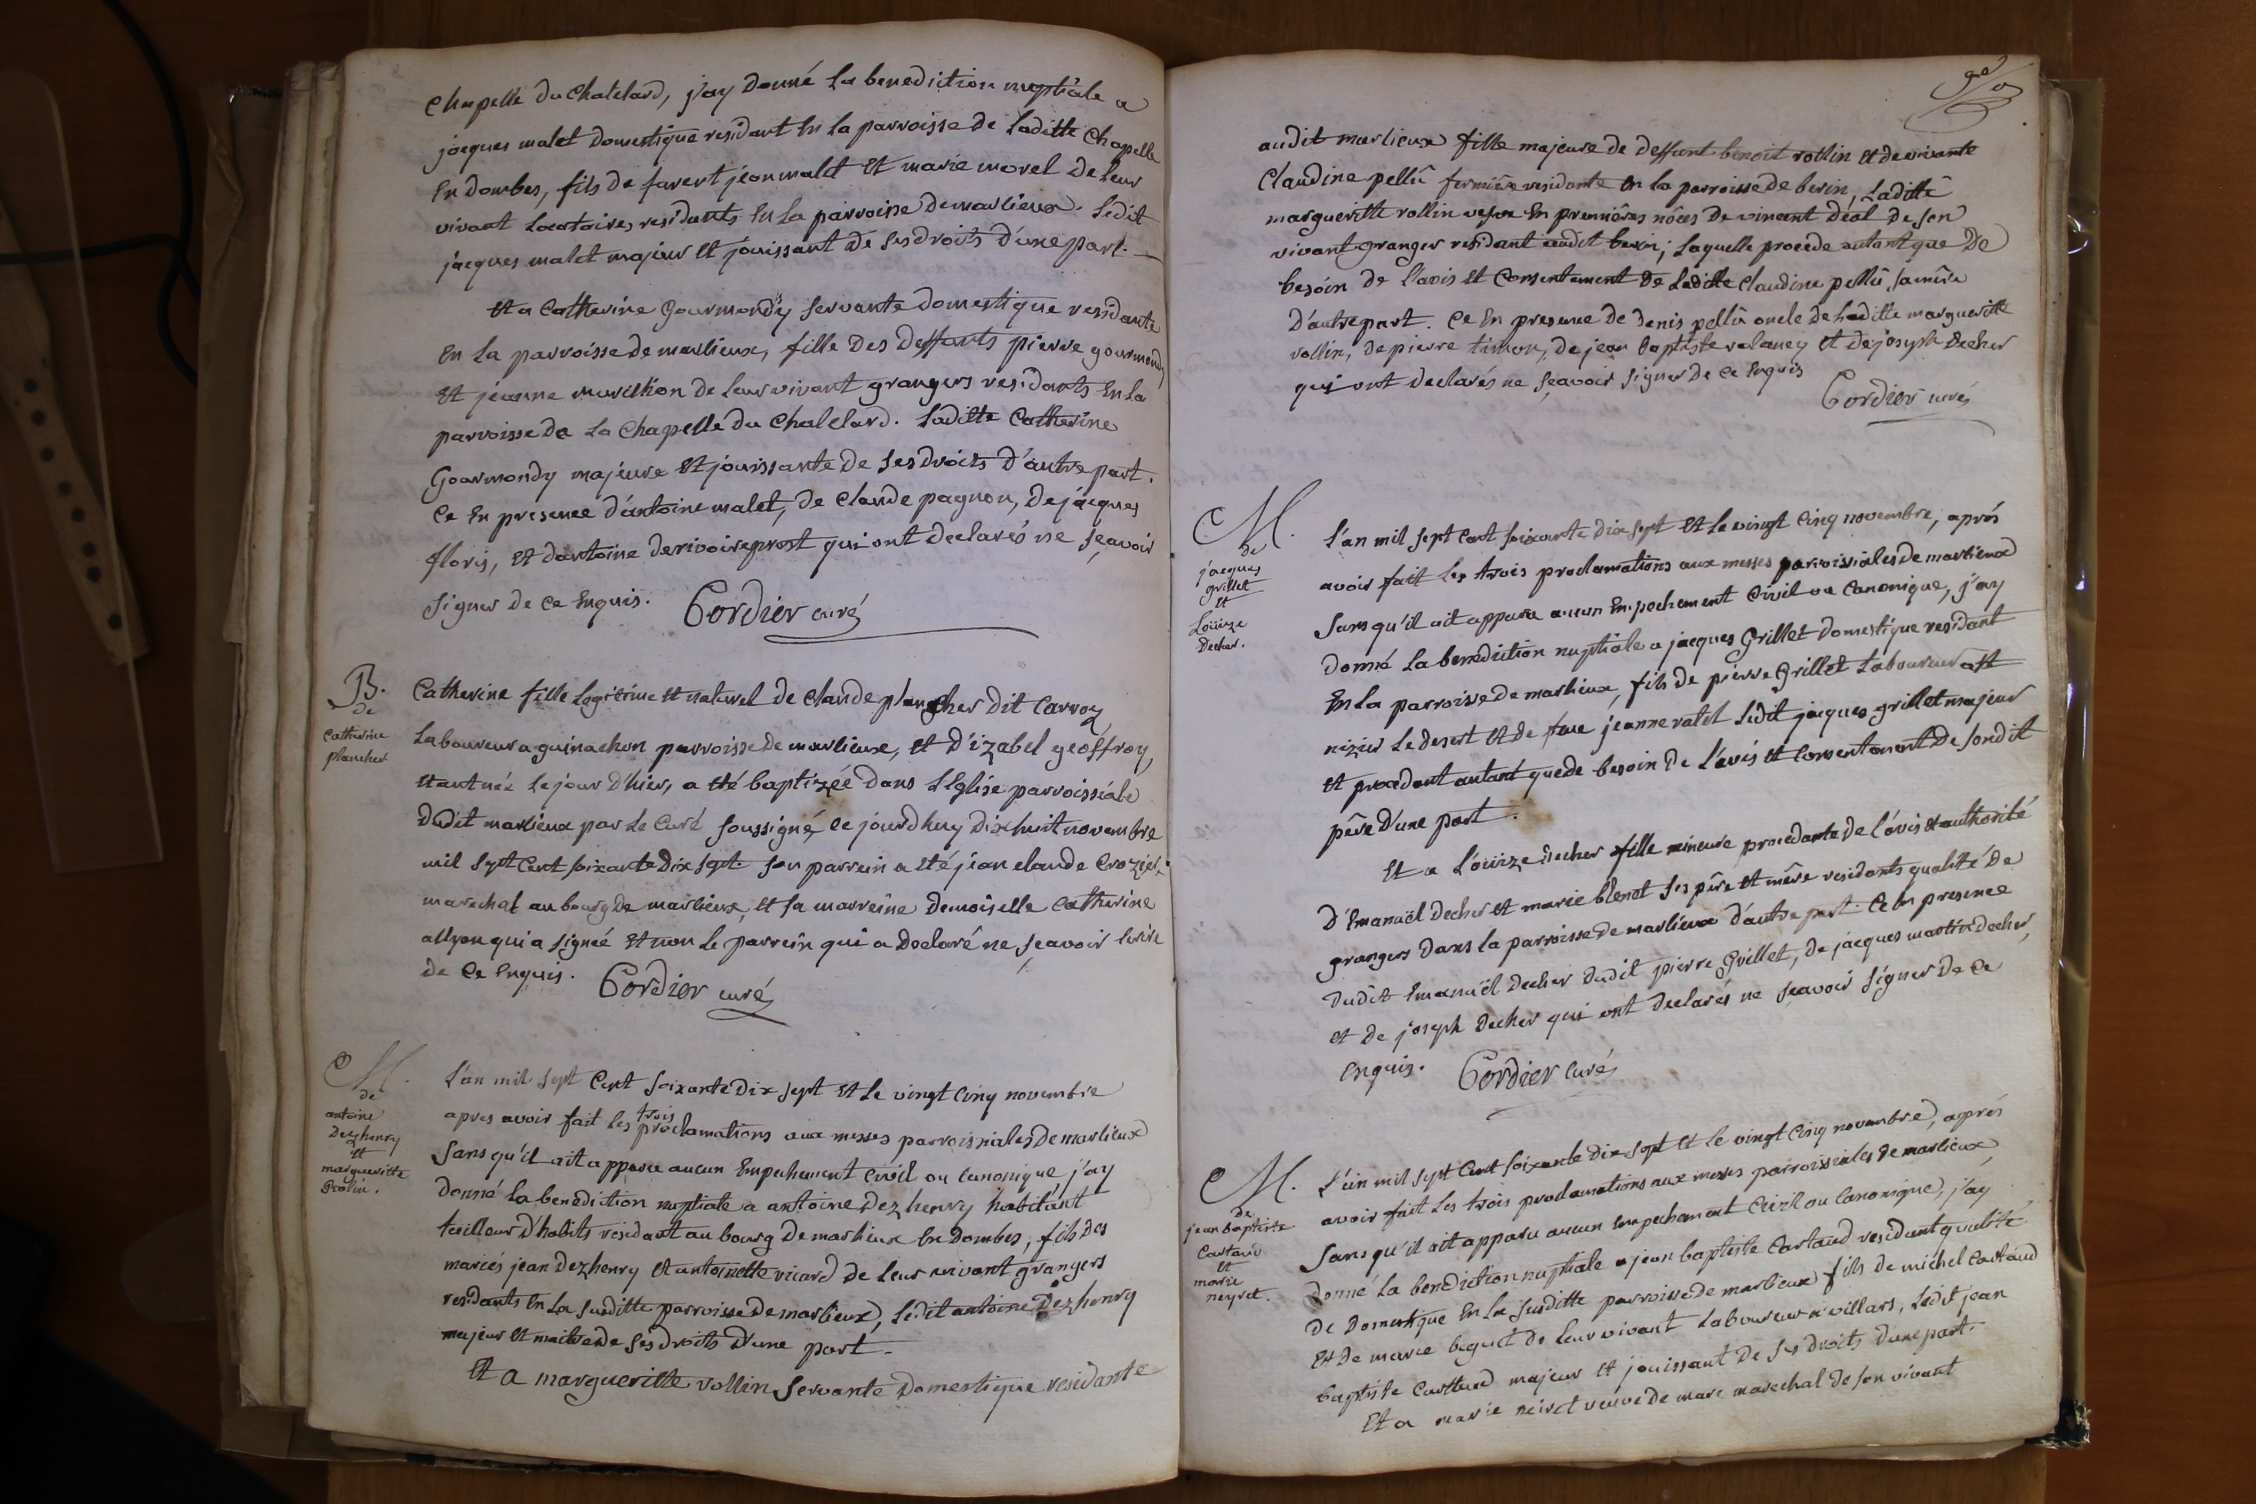 chapelle du chatelard, j'ay donné la benediction nuptiale a
jacques malet domestique residant en la parroisse de laditte chapelle
en dombes, fils de favert jean malet et marie morel de leur
vivant locataires residants en la parroisse de marlieux. ledit
jacques malet majeur et jouissant de ses droits d'une part.
et a catherine gourmondy servante domestique residante
en la parroisse de marlieux, fille des deffunts pierre gourmondy
et jeanne de leur vivant grangers residants en la
parroisse de la chapelle du chatelard. laditte catherine
gourmondy majeure et jouissante de ses droits d'autre part.
ce en presence d'antoine malet, de claude pagnon, de jacques
floris, et d'antoine qui ont declarés ne sçavoir
signer de ce enquis. Cordier curé
B.
de
catherine
plancher
Catherine fille legitime et naturel de claude plancher dit carroz
laboureur a guinachon parroisse de marlieux, et d'izabel geoffroy,
etant née le jour d'hier, a été baptizée dans l'Eglise parroissiale
dudit marlieux par le curé soussigné ce jourd'huy dix huit novembre
mil sept cent soixante dix sept. son parrein a été jean claude croziet
marechal au bourg de marlieux, et sa marreine demoiselle catherine
allyon qui a signée et non le parrein qui a declaré ne sçavoir
de ce enquis. Cordier curé
M.
de
antoine
dezhenry
et
margueritte
rolin.
L'an mil sept cent soixante dix sept et le vingt cinq novembre
apres avoir fait les trois proclamations aux messes parroissiales de marlieux
sans qu'il ait apparu aucun empechement civil ou canonique, j'ay
donné la benediction nuptiale a antoine dezhenry habitant
tailleur d'habits residant au bourg de marlieux en dombes, fils des
mariés jean dezhenry et antoinette vicard de leur vivant grangers
residants en la susditte parroisse de marlieux, ledit antoine dezhenry
majeur et maitre de ses droits d'une part.
et a margueritte rollin servante domestique residante
audit marlieux fille majeure de deffunt benoit rollin et de vivante
claudine pellû fermière residante en la parroisse de birin, laditte
margueritte rollin vefve en premnières nôces de vincent déal de son
vivant granger residant audit birin; laquelle procede autant que de
besoin de l'avis et consentement de laditte claudine pellû sa mère
d'autre part. ce en presence de denis pellû oncle de laditte margueritte
rollin, de pierre timon, de jean baptiste valancy et de joseph decher
qui ont declarés ne sçavoir signer de ce enquis
Cordier curé
M.
de
jacques
grillet
et
Loüize
decher.
L'an mil sept cent soixante dix sept et le vingt cinq novembre, aprés
avoir fait les trois proclamations aux messes parroissiales de marlieux
sans qu'il ait apparu aucun empechement civil ou canonique, j'ay
donné la benediction nuptiale a jacques grillet domestique residant
en la parroisse de marlieux, fils de pierre grillet laboureur a st
nizier le desert et de feue jeanne ratel ledit jacques grillet majeur
et procedant autant que de besoin de l'avis et consentement de sondit
père d'une part.
et a Loüize decher fille mineure procedante de l'avis et authorité
d'Emanuël decher et marie blenet ses père et mère residants qualité de
grangers dans la parroisse de marlieux d'autre part. ce en presence
dudit emanuël decher dudit pierre grillet, de jacques martin decher,
et de joseph decher qui ont declarés ne sçavoir signer de ce
enquis. Cordier curé
M.
de
jean baptiste
cartaud
et
marie
neyret.
L'an mil sept cent soixante dix sept et le vingt cinq novembre, aprés
avoir fait les trois proclamations aux messes parroissiales de marlieux,
sans qu'il ait apparu aucun empechement civil ou canonique, j'ay
donné la benediction nuptiale a jean baptiste cartaud residant qualité
de domestique en la susditte parroisse de marlieux fils de michel cartaud
et de marie beguet de leur vivant laboureur a villars, ledit jean
baptiste cartaud majeur et jouissant de ses droits d'une part.
et a marie neiret veuve de marc marechal de son vivant